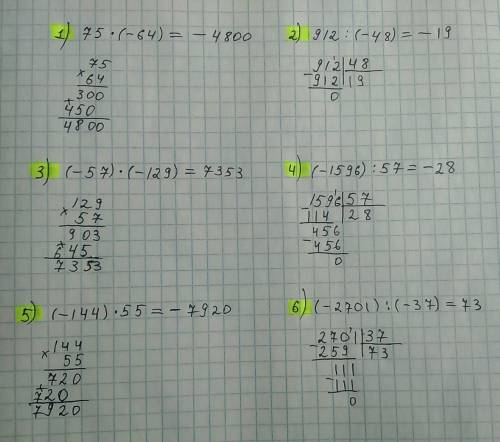 1) 75 · (-64) = - 4800
75
× 64
+ 300
450
4800
2) 912 : (-48) = - 19
- 912 | 48
912 | 19
0
3) (-57) · (-129) = 7353
× 129
57
+ 903
645
7353
4) (-1596) : 57 = - 28
- 1596 | 57
114 | 28
- 456
456
0
5) (-144) · 55 = - 7920
× 144
55
+ 720
720
7920
6) (-2701) : (-37) = 73
- 2701 | 37
259 | 73
- 111
111
0